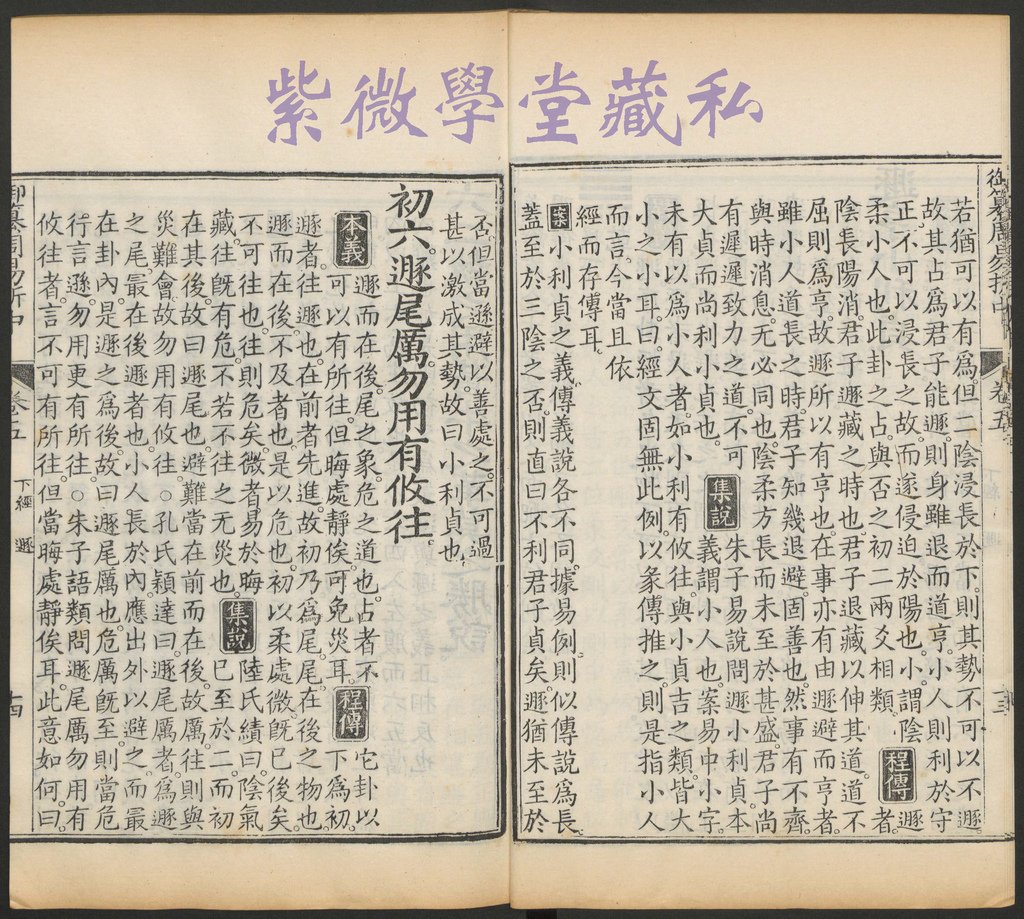 紫微學堂藏私
若猶可以有爲但二陰浸長於下則其勢不可以不遯
故其占爲君子能遯則身雖退而道亨小人則利於守
正不可以浸長之故而遂侵迫於陽也小謂陰
柔小人也此卦之占與否之初二兩爻相類程傳遯者
陰長陽消君子遯藏之時也君子退藏以伸其道道不
屈則爲亨故遯所以有亨也在事亦有由遯避而亨者
雖小人道長之時君子知幾退避固善也然事有不齊
與時消息无必同也陰柔方長而未至於甚盛君子尚
有遲遲致力之道不可集說朱子易說問遯小利貞本
大貞而尚利小貞也義謂小人也案易中小字
未有以爲小人者如小利有攸往與小貞吉之類皆大
小之小耳曰經文固無此例以彖傳推之則是指小人
而言今當且依
經而存傳耳
案小利貞之義傳義說各不同據易例則似傳說爲長
蓋至於三陰之否則直曰不利君子貞矣遯猶未至於
否但當遜避以善處之不可過
甚以激成其勢故曰小利貞也
初六遯尾厲勿用有攸往
本義遯而在後尾之象危之道也占者不
可以有所往但晦處靜俟可免災耳程傳它卦以下爲初
遯者往遯也在前者先進故初乃爲尾尾在後之物也
遯而在後不及者也是以危也初以柔處微旣已後矣
不可往也往則危矣微者易於晦
藏往旣有危不若不往之无災也集說陸氏績曰陰氣已至於二而初
在其後故曰遯尾也避難當在前而在後故厲往則與
災難會故勿用有攸往○孔氏穎達曰遯尾厲者爲遯
之尾最在後遯者也小人長於內應出外以避之而最
在卦內是遯之爲後故曰遯尾厲也危厲旣至則當危
行言遜勿用更有所往○朱子語類問遯尾厲勿用有
攸往者言不可有所往但當晦處靜俟耳此意如何曰
卷五
下經 遯
十四